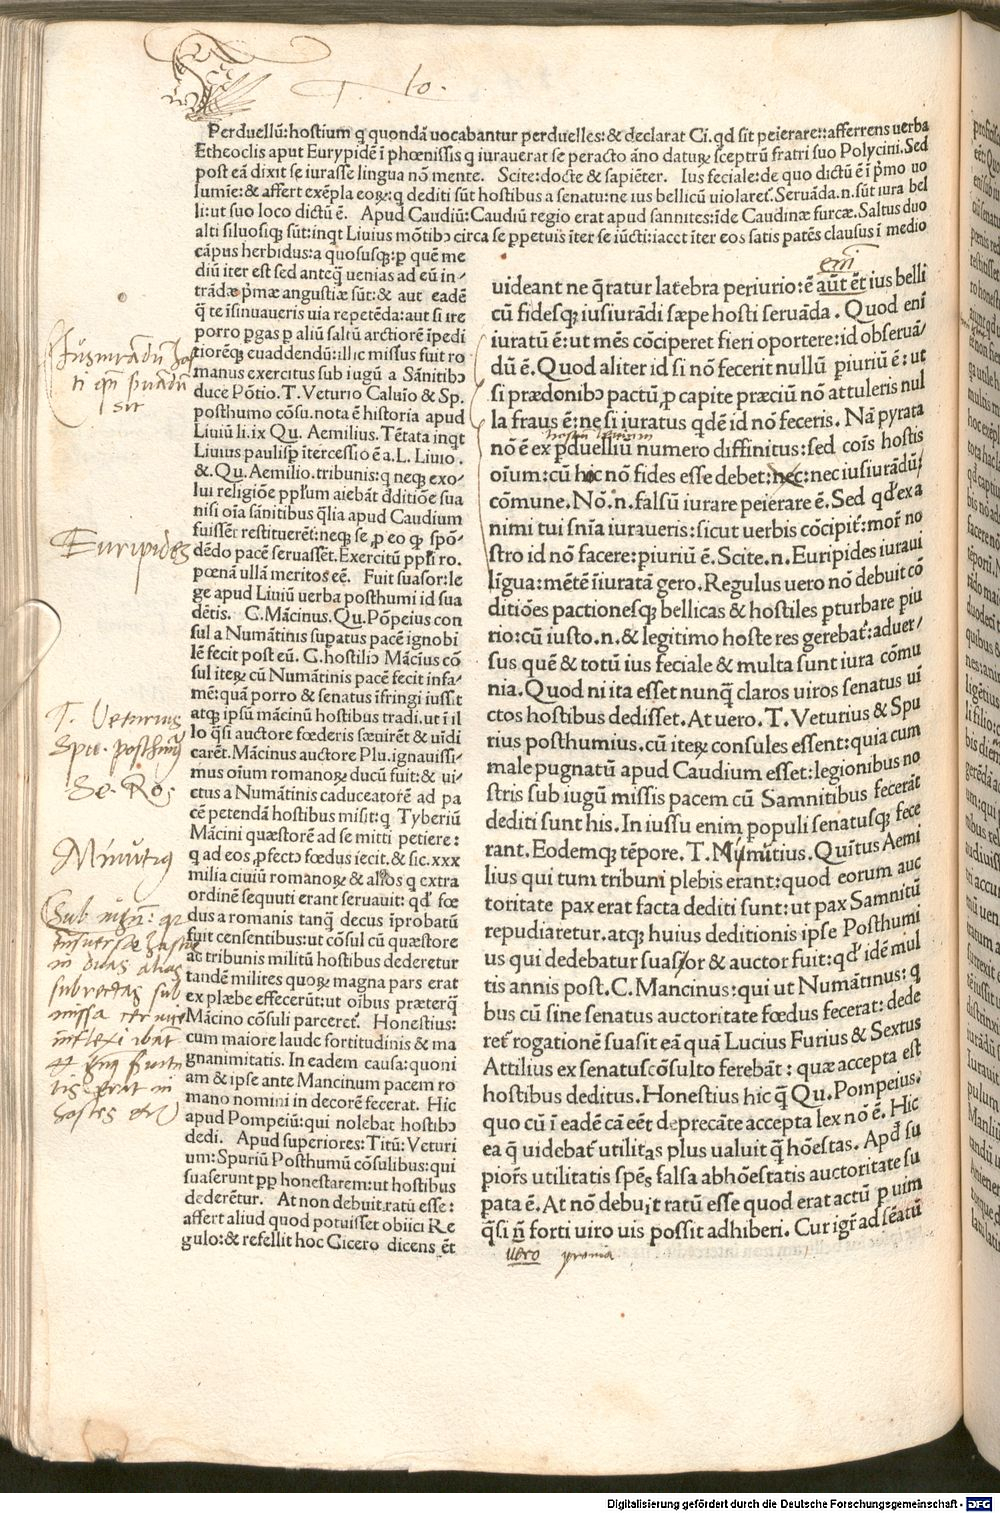 10.
Perduellū:hostium q̄ quondā uocabantur perduelles:& declarat Ci.qd sit peierare::afferrens uerba
Etheoclis aput Eurypidē ī phœnissis q iurauerat se peracto āno daturꝝ sceptrū fratri suo Polycini.Sed
post eā dixit se iurasse lingua nō mente. Scite:docte & sapiēter. Ius feciale:de quo dictū ē ī p̄mo uo
lumīe:& affert exēpla eoꝝ:q dediti sūt hostibus a senatu:ne ius bellicū uiolaret.Seruāda.n.sūt iura bel
li:ut suo loco dictū ē. Apud Caudiū:Caudiū regio erat apud sannites:īde Caudinæ furcæ.Saltus duo
alti siluosiqꝫ sūt:inqt Liuius mōtibꝫ circa se ꝑpetuis īter se iūcti:iacet īter eos satis patēs clausus ī medio
cāpus herbidus:a quosusqꝫ:ꝑ quē me
diū iter est sed anteq̄ uenias ad eū in-
trādæ p̄mæ angustiæ sūt:& aut eadē
q̄ te īsinuaueris uia repetēda:aut si ire
porro ꝑgas ꝑ aliū saltū arctiorē īpedi
tiorēqꝫ euaddendū:illic missus fuit ro
manus exercitus sub iugū a Sānitibꝫ
duce Pōtio.T.Veturio Caluīo & Sp.
posthumo cōsu.nota ē historia apud
Liuiū li.ix Qu. Aemilius.Tētata inqt
Liuius paulisꝑ ītercessio ē a.L.Liuio.
&.Qu.Aemilio.tribunis:q neqꝫ exo-
lui religiōe ppl̄um aiebāt d̄ditiōe sua
nisi oīa sānitibus q̄lia apud Caudium
fuissēt restituerēt:neqꝫ se ꝓ eo qꝫ spō-
dēdo pacē seruassēt.Exercitū ppl̄i ro.
pœnā ullā meritos eē. Fuit suasor:le
ge apud Liuiū uerba posthumi id sua
dētis. C.Mācinus.Qu.Pōpeius con
sul a Numātinis suꝑatus pacē ignobi
lē fecit post eū. C.hostiliꝰ Mācīus cō
sul iteꝝ cū Numātinis pacē fecit infa-
mē:quā porro & senatus īfringi iussit
atqꝫ ipsū mācinū hostibus tradi.ut ī il
lo q̄si auctore fœderis sæuirēt & uīdi
carēt.Mācinus auctore Plu.ignauissi-
mus oīum romanoꝝ ducū fuit:& ui-
ctus a Numātinis caduceatorē ad pa
cē petendā hostibus misit:q Tyberiū
Mācini quæstorē ad se mitti petiere:
q ad eos ꝓfectꝰ fœdus iecit.& sic.xxx
milia ciuiū romanoꝝ & alios q extra
ordinē sequuti erant seruauit: qd' fœ
dus a romanis tanq̄ decus īprobatū
fuit censentibus:ut cōsul cū quæstore
ac tribunis militū hostibus dederetur
tandē milites quoꝝ magna pars erat
ex plæbe effecerūt:ut oībus præterq̄
Mācino cōsuli parceret̄. Honestius:
cum maiore laude fortitudinis & ma
gnanimitatis. In eadem causa:quoni
am & ipse ante Mancinum pacem ro
mano nomini in decorē fecerat. Hic
apud Pompeiū:qui nolebat hostibꝰ
dedi. Apud superiores:Titū:Veturi
um:Spuriū Posthumū cōsulibus:qui
suaserunt ꝑp honestarem:ut hostibus
dederētur. At non debuit.ratū esse:
affert aliud quod potuisset obiici Re
gulo:& refellit hoc Cicero dicens ēt
enī
uideant ne q̄ratur latebra periurio:ē aūt ēt ius belli
cū fidesqꝫ iusiurādi sæpe hosti seruāda. Quod enī
iuratū ē:ut mēs cōciperet fieri oportere:id obseruā-
dū ē. Quod aliter id si nō fecerit nullū ꝑiuriū ē:ut
si prædonibꝰ pactū,ꝓ capite præciū nō attuleris nul
la fraus ē:ne si iuratus qdē id nō feceris. Nā pyrata
nō ē ex ꝑduelliū numero diffinitus:sed coīs hostis
oīum:cū hic nō fides esse debet:nec:nec iusiurādū
cōmune. Nō.n.falsū iurare peierare ē. Sed qd' ex a
nimi tui snīa iuraueris:sicut uerbis cōcipit̄:mor̄ no
stro id nō facere:ꝑiuriū ē.Scite.n.Euripides iuraui
līgua:mētē īiuratā gero.Regulus uero nō debuit cō
ditiōes pactionesqꝫ bellicas & hostiles ꝑturbare ꝑiu
rio:cū iusto.n.& legitimo hoste res gerebat̄:aduer-
sus quē & totū ius feciale & multa sunt iura cōmu
nia.Quod ni ita esset nunq̄ claros uiros senatus uī
ctos hostibus dedisset.At uero.T.Veturius & Spu
rius posthumius.cū iteꝝ consules essent:quia cum
male pugnatū apud Caudium esset:legionibus no
stris sub iugū missis pacem cū Samnitibus fecerāt
dediti sunt his.In iussu enim populi senatusqꝫ fece
rant.Eodemqꝫ tēpore.T.Mumitius.Quītus Aemi
lius qui tum tribuni plebis erant:quod eorum auc
toritate pax erat facta dediti sunt:ut pax Samnitū
repudiaretur.atqꝫ huius deditionis ipse Posthumi
us qui dedebatur suasor & auctor fuit:qd' idē mul
tis annis post.C.Mancinus:qui ut Numātinus:q
bus cū sine senatus auctoritate fœdus fecerat:dede
ret̄ rogationē suasit eā quā Lucius Furius & Sextus
Attilius ex senatuscōsulto ferebāt: quæ accepta est
hostibus deditus.Honestius hic q̄ Qu.Pompeius.
quo cū ī eadē cā eēt deprecāte accepta lex nō ē. Hic
ea q̄ uidebat̄ utilitas plus ualuit q̄ hōestas. Apd' su
piores utilitatis spēs falsa abhōestatis auctoritate su
pata ē.At nō debuit ratū esse quod erat actū p uim
q̄si ꝟ forti uiro uis possit adhiberi.Cur igr̄ ad sēatū
uero
Iusiurandū hos
ti etiā seruandū
sit
Euripides
T. Veturius
Spu. posthumꝰ
Minutiꝰ